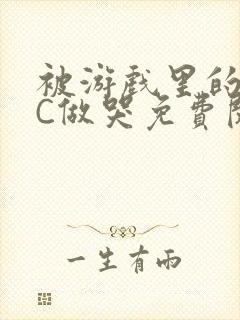 被游戏里的
C做哭免费阅
一生有雨